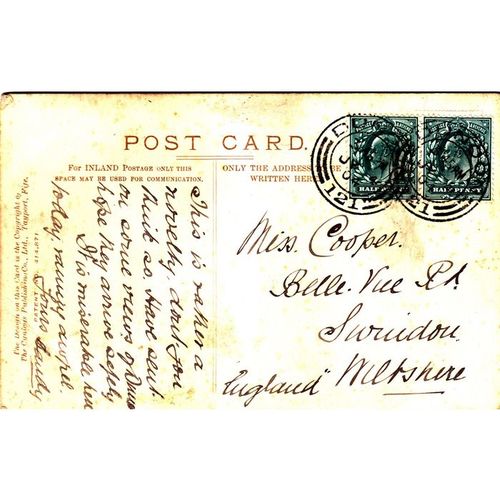 POST CARD.
FOR INLAND POSTAGE ONLY THIS
SPACE MAY BE USED FOR COMMUNICATION.
ONLY THE ADDRESS
WRITTEN HER
The Design on this Card is the Copyright of
The Cynicus Publishing Co., Ltd., Tayport, Fife.
PATENT
This is rather a
novelty, dont you
think so. Have sent
on some views of
hope they arrive safely
It is miserable here
today, rainy
Yours
HALF PENNY
HALF PENNY
121
Miss. Cooper.
Belle. Vue Rd.
Swindon.
England Wiltshire